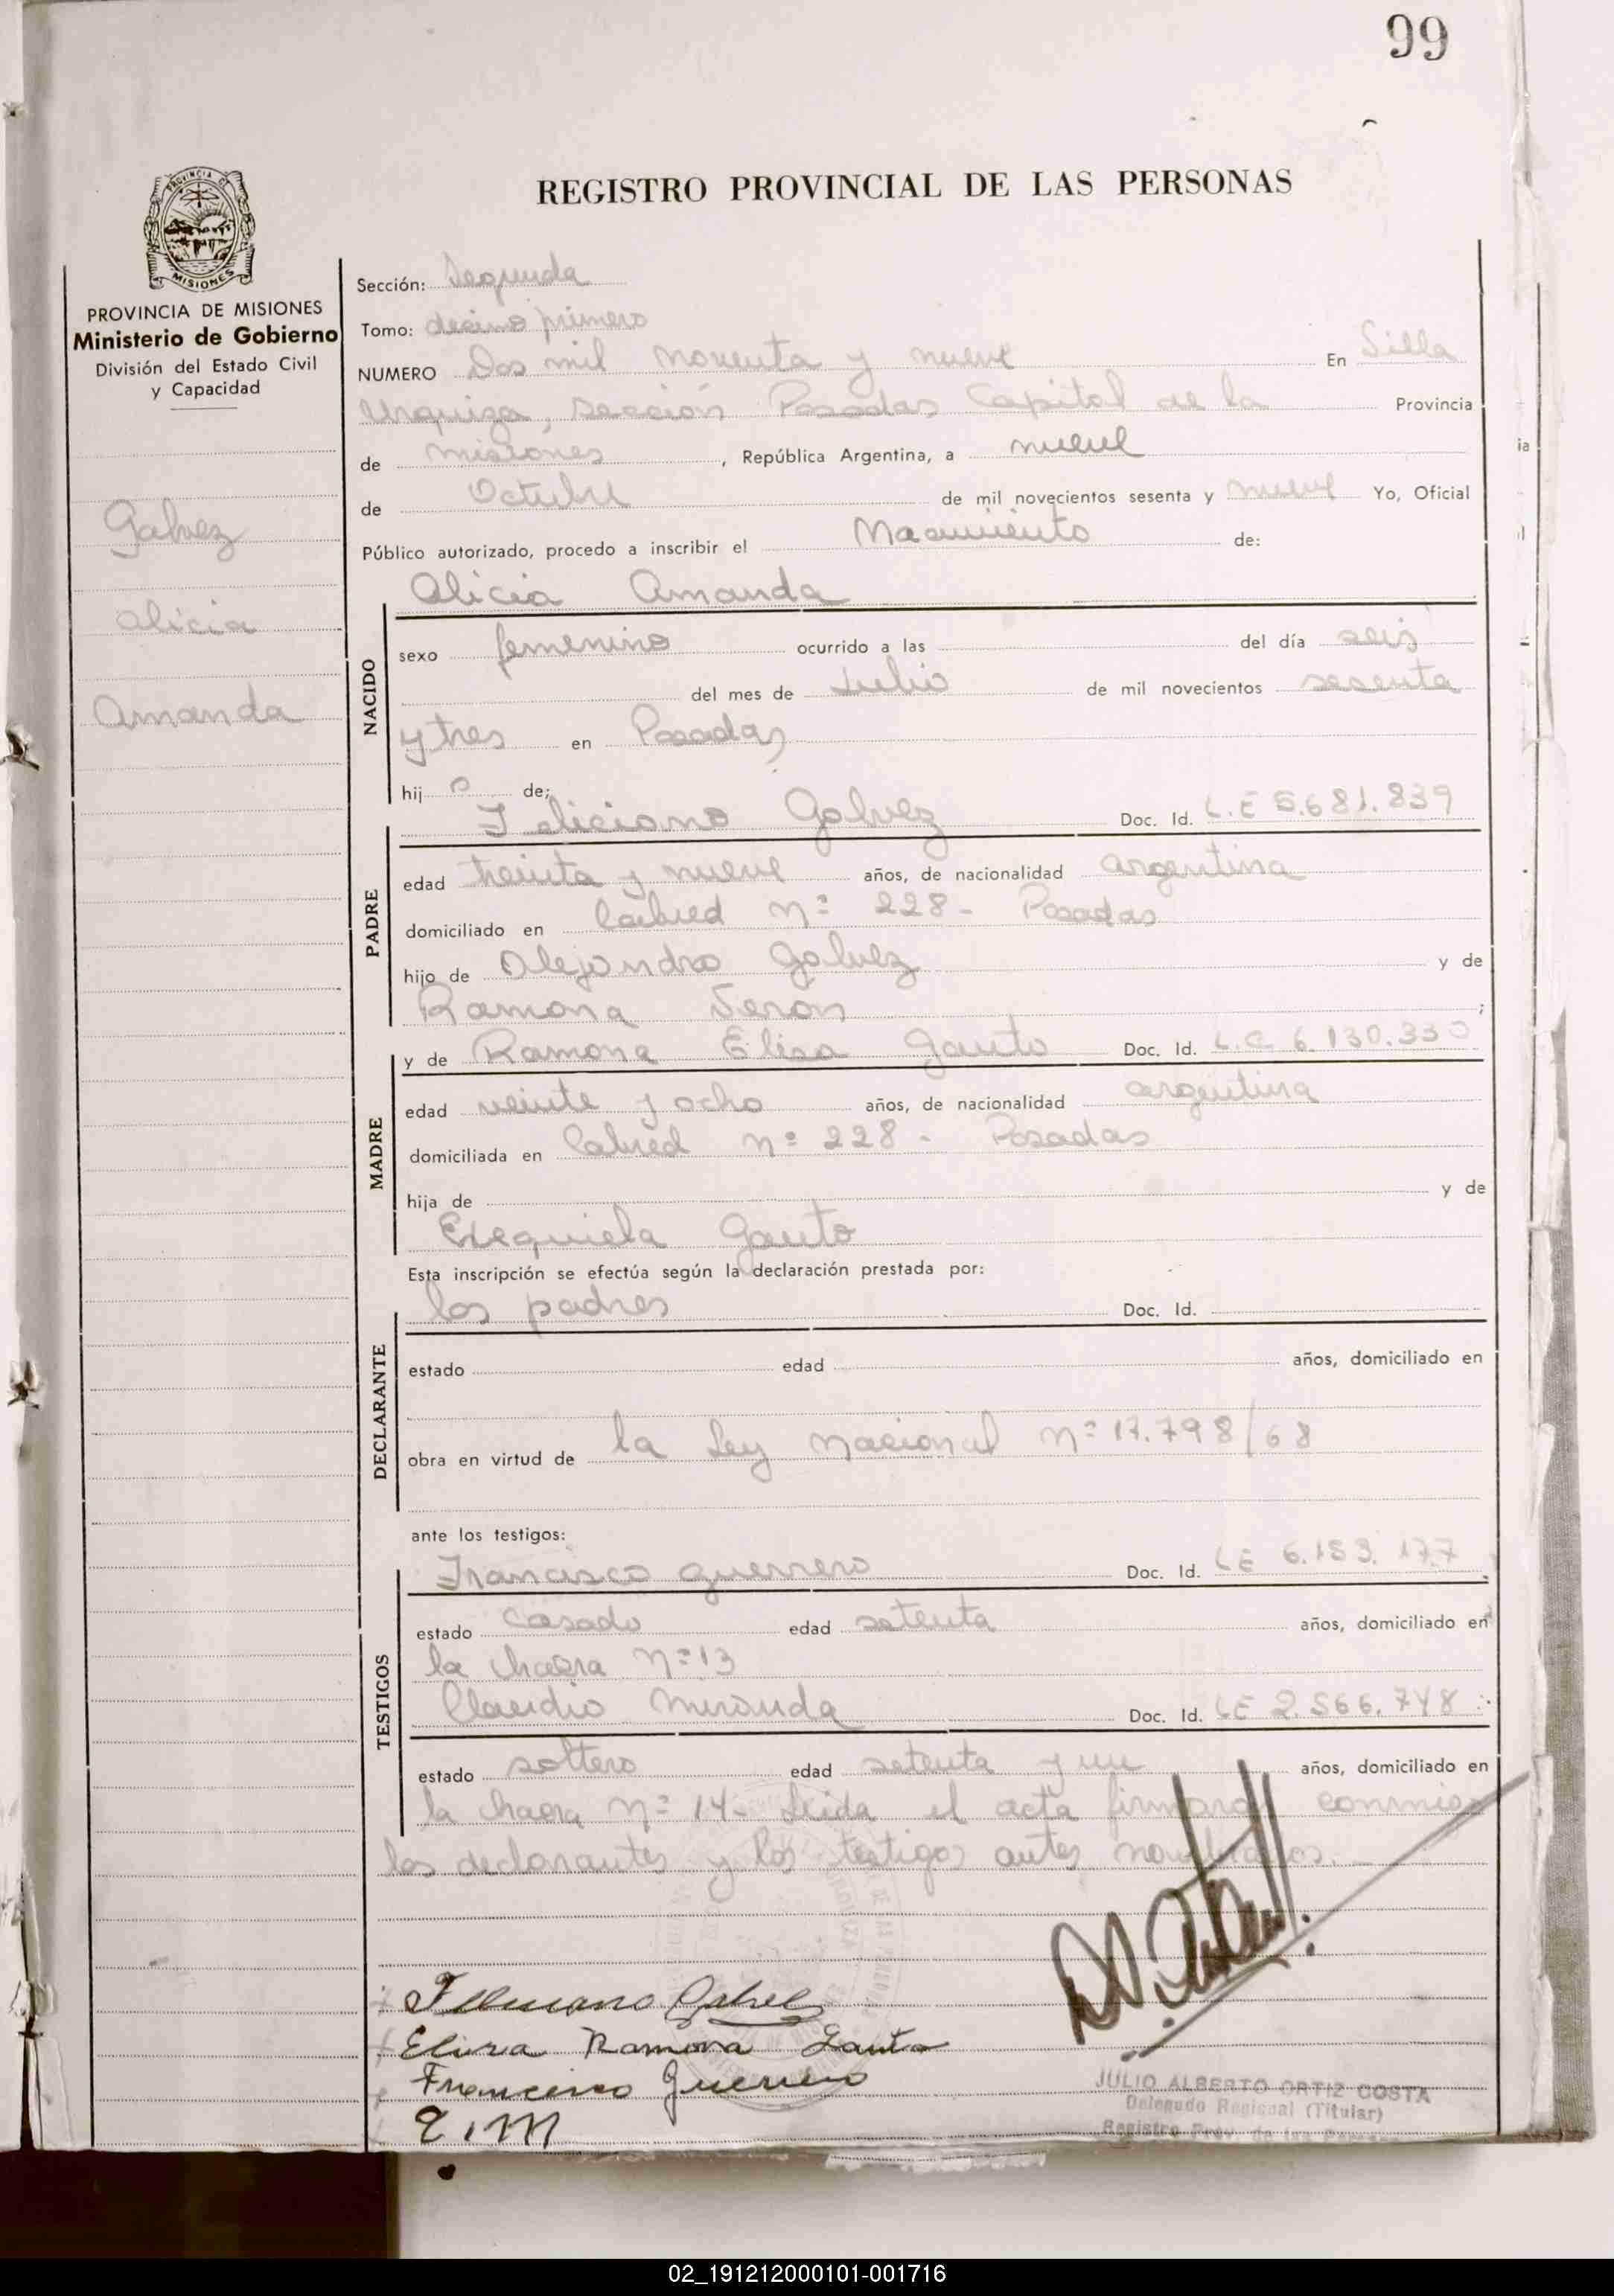 99
REGISTRO PROVINCIAL DE LAS PERSONAS
PROVINCIA DE MISIONES
Ministerio de Gobierno
División del Estado Civil
y Capacidad
Galvez
Alicia
Amanda
Sección: Segunda
Tomo: decimo primero
NUMERO Dos mil noventa y nueve En Villa
Urquiza, Sección Posadas Capital de la Provincia
de misiones, República Argentina, a nueve
de Octubre de mil novecientos sesenta y nueve Yo, Oficial
Público autorizado, procedo a inscribir el Nacimiento de:
Alicia Amanda
NACIDO
sexo femenino ocurrido a las del día seis
del mes de Julio de mil novecientos sesenta
y tres en Posadas
hij a de;
Feliciano Galvez Doc. Id. L.E 5.681.839
PADRE
edad treinta y nueve años, de nacionalidad argentina
domiciliado en Cabred nº 228 - Posadas
hijo de Alejandro Galvez y de
Ramona Seron;
y de Ramona Elisa Gauto Doc. Id. L.C 6.130.330
MADRE
edad veinte y ocho años, de nacionalidad argentina
domiciliada en Cabred nº 228 - Posadas
hija de y de
Exequiela Gauto
Esta inscripción se efectúa según la declaración prestada por:
los padres Doc. Id.
DECLARANTE
estado edad años, domiciliado en
obra en virtud de la Ley nacional nº 17.798/68
ante los testigos:
Francisco Guerrero Doc. Id. LE 6.183.177
TESTIGOS
estado casado edad setenta años, domiciliado en
la chacra nº 13
Claudio Miranda Doc. Id. LE 2.566.748
estado soltero edad setenta y un años, domiciliado en
la chacra nº 14- Leida el acta firmaron conmigo
los declarantes y los testigos antes nombrados.
Feliciano Galvez
Elisa Ramona Gauto
Francisco Guerrero
C.M
JULIO ALBERTO ORTIZ COSTA
Delegado Regional (Titular)
Registro Prov. de las
02_191212000101-001716